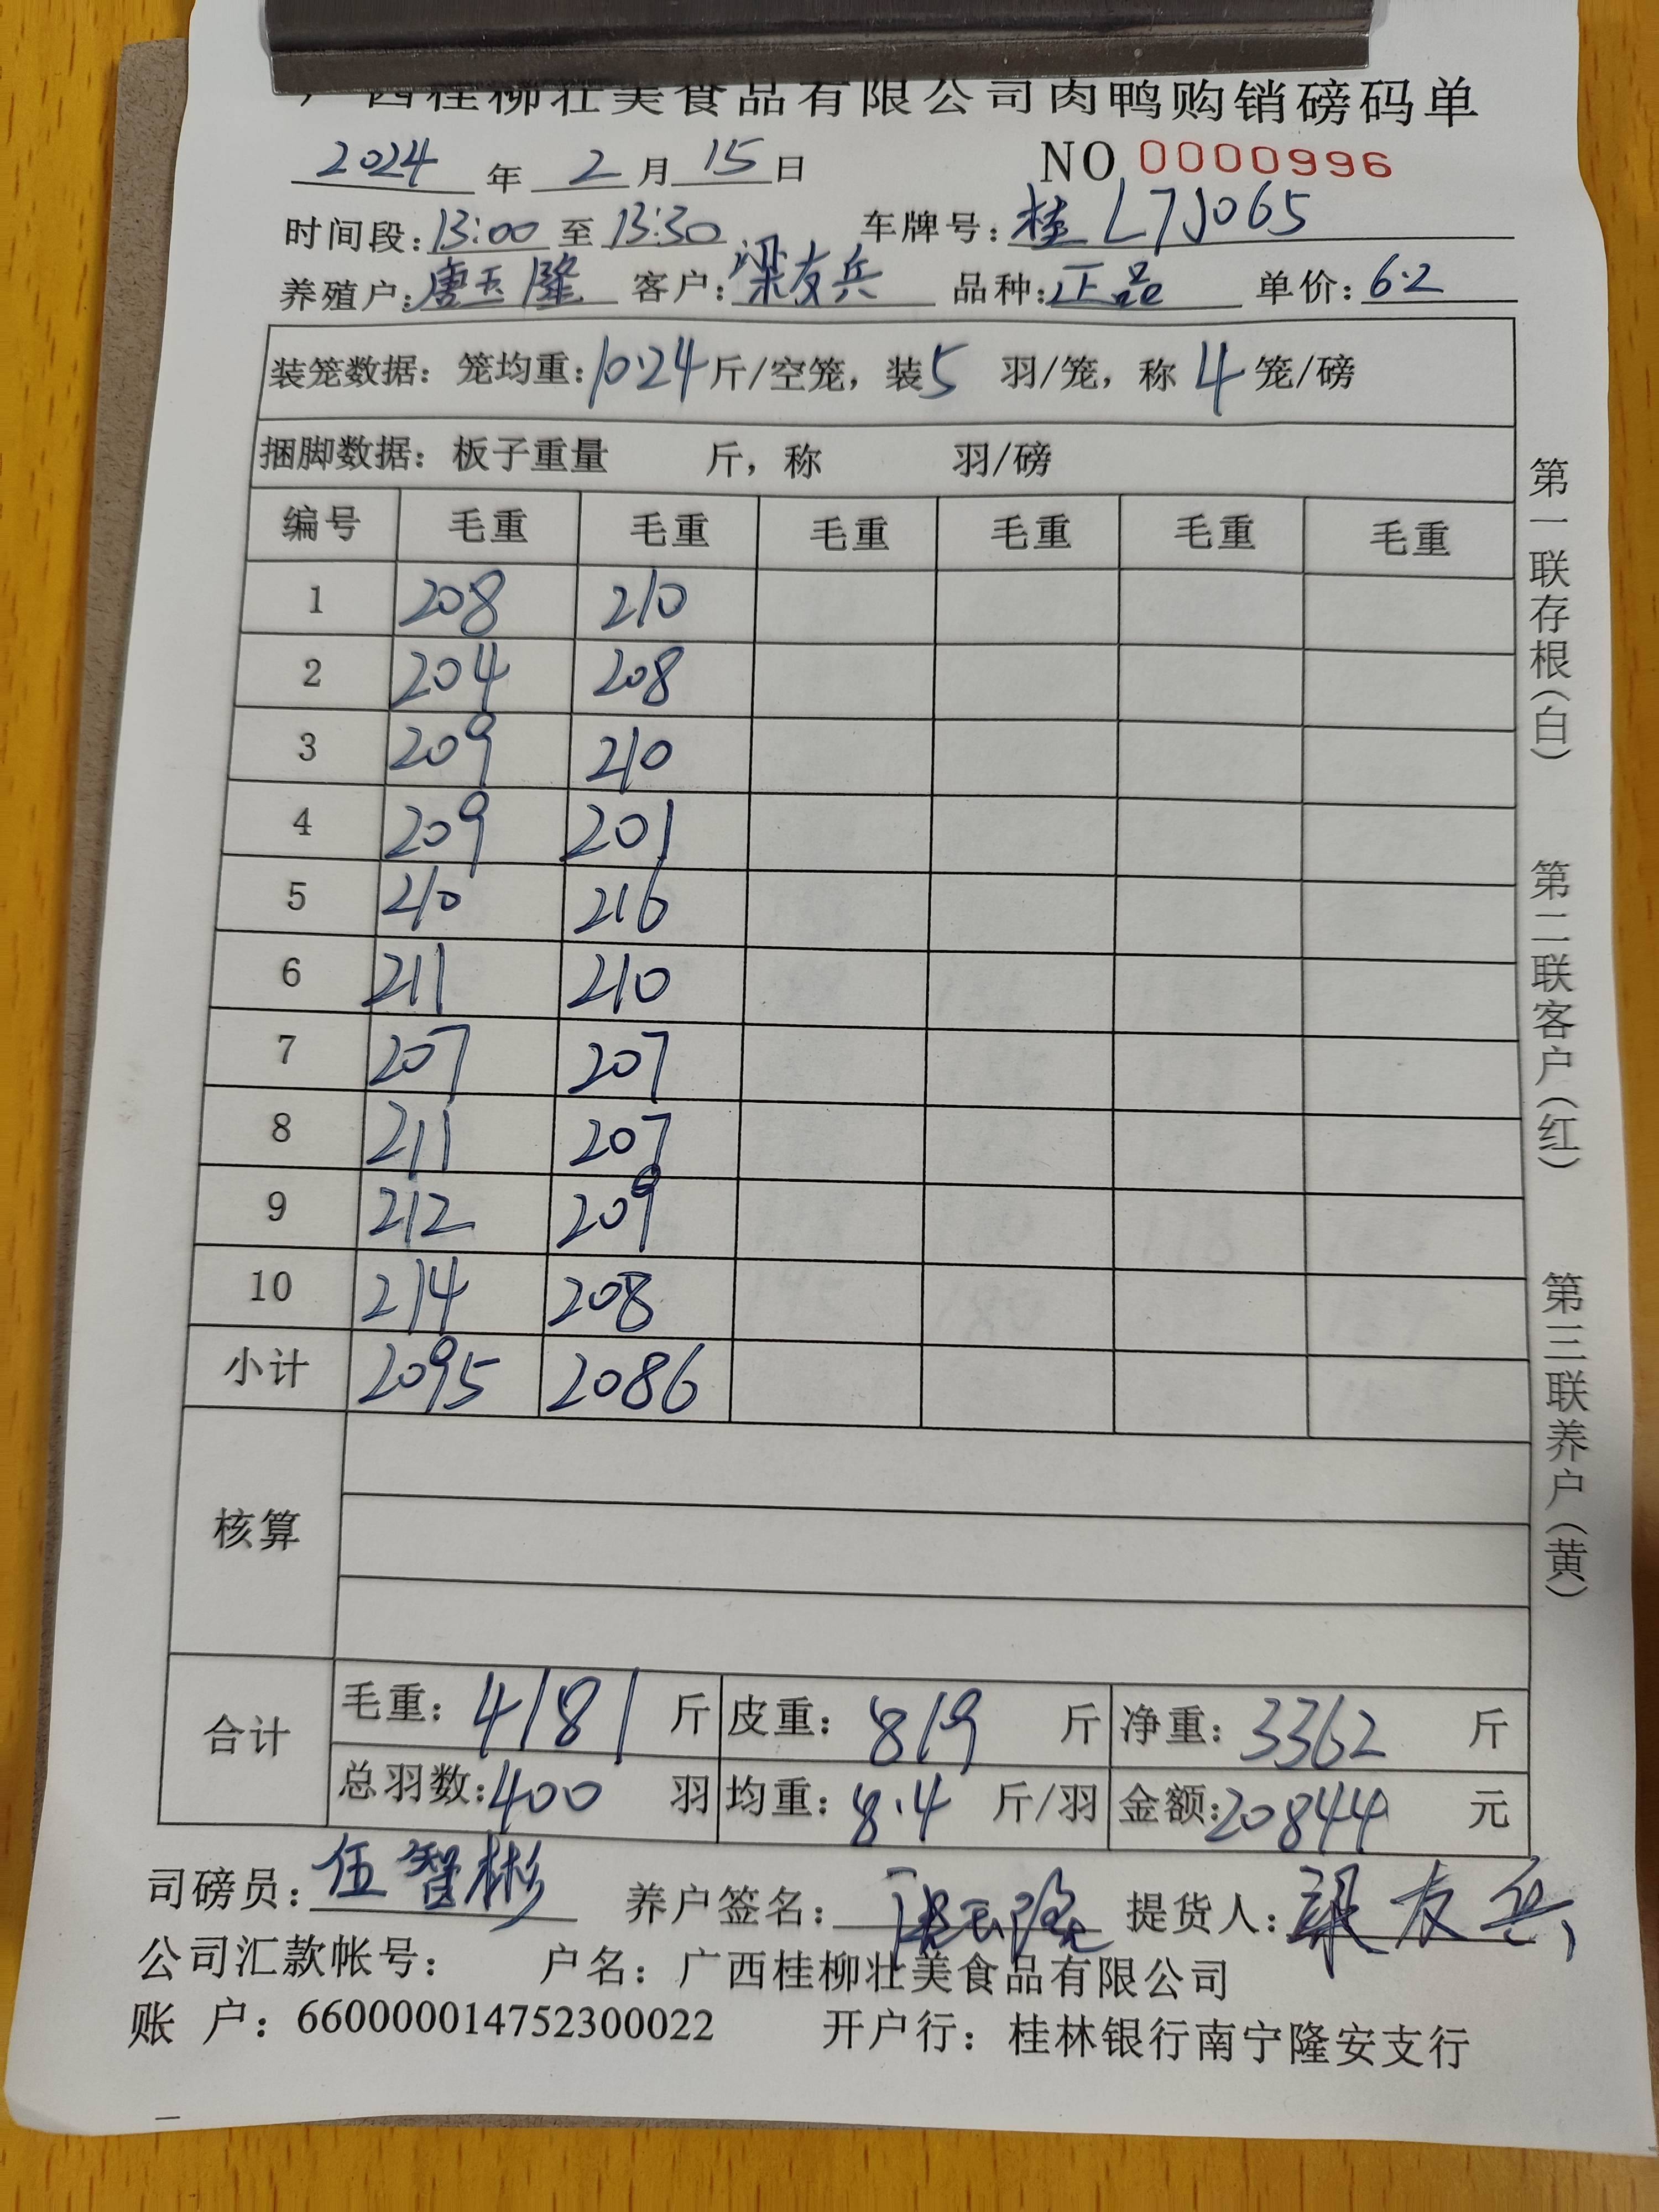 广西桂柳壮美食品有限公司肉鸭购销磅码单
2024 年 2 月 15 日 NO 0000996
时间段:13:00 至 13:30 车牌号:桂L7J065
养殖户:唐玉隆 客户:梁友兵 品种:正品 单价:6.2
装笼数据:笼均重:10.24斤/空笼,装5 羽/笼,称 4 笼/磅
捆脚数据:板子重量 斤,称 羽/磅
编号 毛重 毛重 毛重 毛重 毛重 毛重
1 208 210
2 204 208
3 209 210
4 209 201
5 210 216
6 211 210
7 207 207
8 211 207
9 212 209
10 214 208
小计 2095 2086
核算
合计 毛重:4181 斤 皮重:819 斤 净重:3362 斤
总羽数:400 羽 均重:8.4 斤/羽 金额:20844 元
司磅员:伍智彬 养户签名:唐玉隆 提货人:梁友兵
公司汇款帐号: 户名:广西桂柳壮美食品有限公司
账 户:660000014752300022 开户行:桂林银行南宁隆安支行
第一联存根(白) 第二联客户(红) 第三联养户(黄)